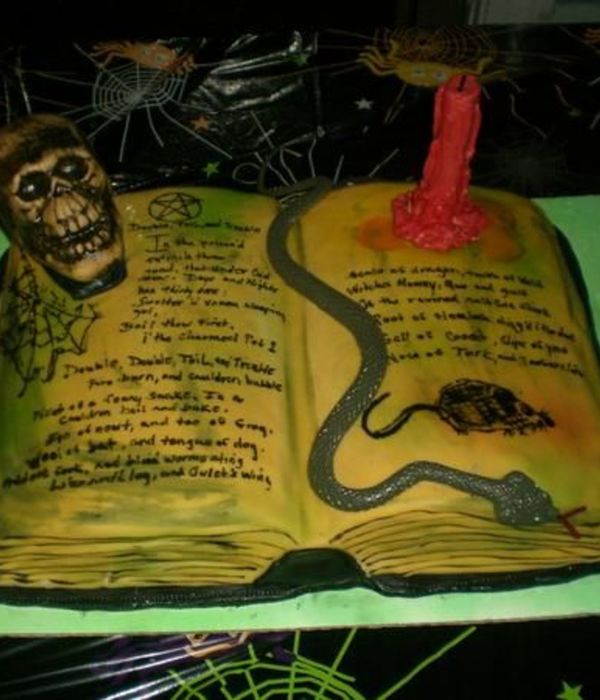 Double, Toil, and Trouble
In the poison'd
entrails throw.
toad, that under cold
days and nights
has thirty
Swelter'd venom sleeping
got,
Boil thou first,
i' the charmed Pot
Double, Double, Toil, and Trouble
Fire burn, and cauldron bubble
Fillet of a fenny snake, In a
Cauldron boil and bake,
Eye of newt, and toe of frog,
Wool of bat, and tongue of dog,
and blind worms sting
leg, and Owlet's wing
Scale of dragon, tooth of wolf
Witches Mummy, Maw and gulf
Of the ravined salt sea shark
Root of Hemlock digg'd
Gall of Goat, Slips of yew
Nose of Turk, and